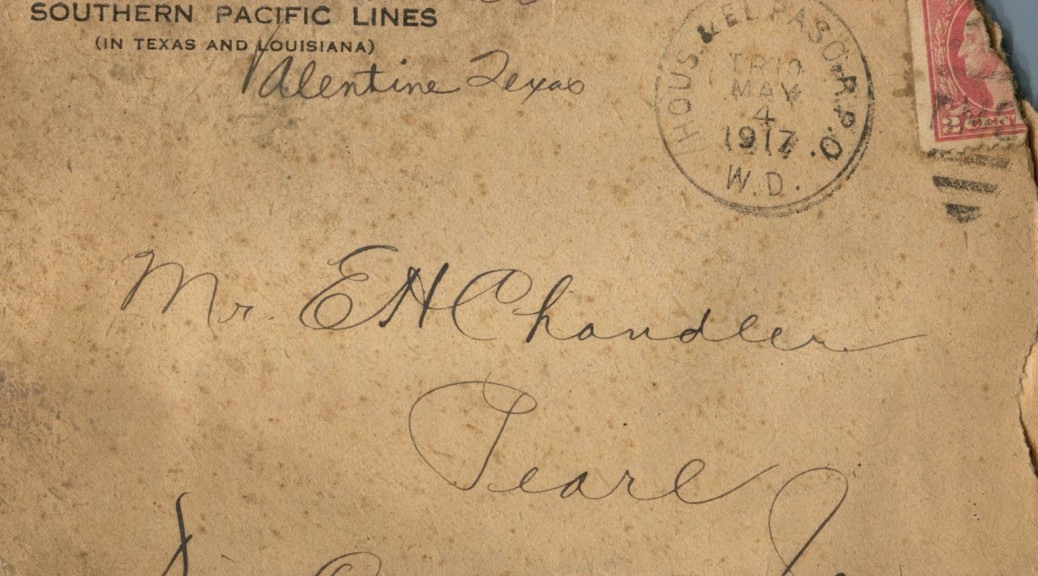 SOUTHERN PACIFIC LINES
(IN TEXAS AND LOUISIANA)
Valentine Texas
HOUS. & EL PASO. R.P.O.
TR10
MAY
4
1917
W.D.
2
Mr. E H Chandler
Pearl